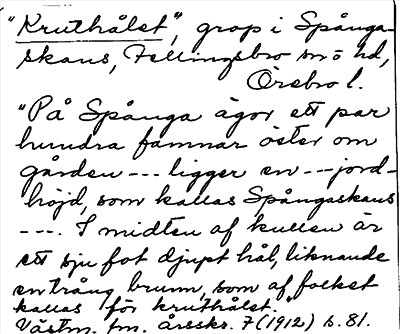 "Kruthålet", grop i Spånga-
skans, Fellingsbro sn o hd,
Örebro l.
"På Spånga ägor ett par
hundra famnar öster om
gården --- ligger en --- jord-
höjd, som kallas Spångaskans
---. I midten af kullen är
ett sju fot djupt hål, liknande
en trång brunn, som af folket
kallas för kruthålet."
Västm. fm. årsskr. 7 (1912) s. 81.